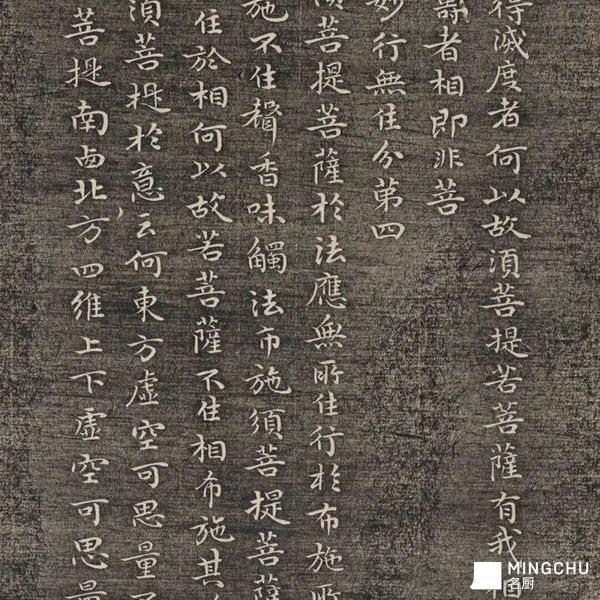 得滅度者何以故須菩提若菩薩有我相
壽者相即非菩
妙行無住分第四
須菩提菩薩於法應無所住行於布施所
施不住聲香味觸法布施須菩提菩薩
住於相何以故若菩薩不住相布施其
須菩提於意云何東方虛空可思量
菩提南西北方四維上下虛空可思量
MINGCHU
名厨